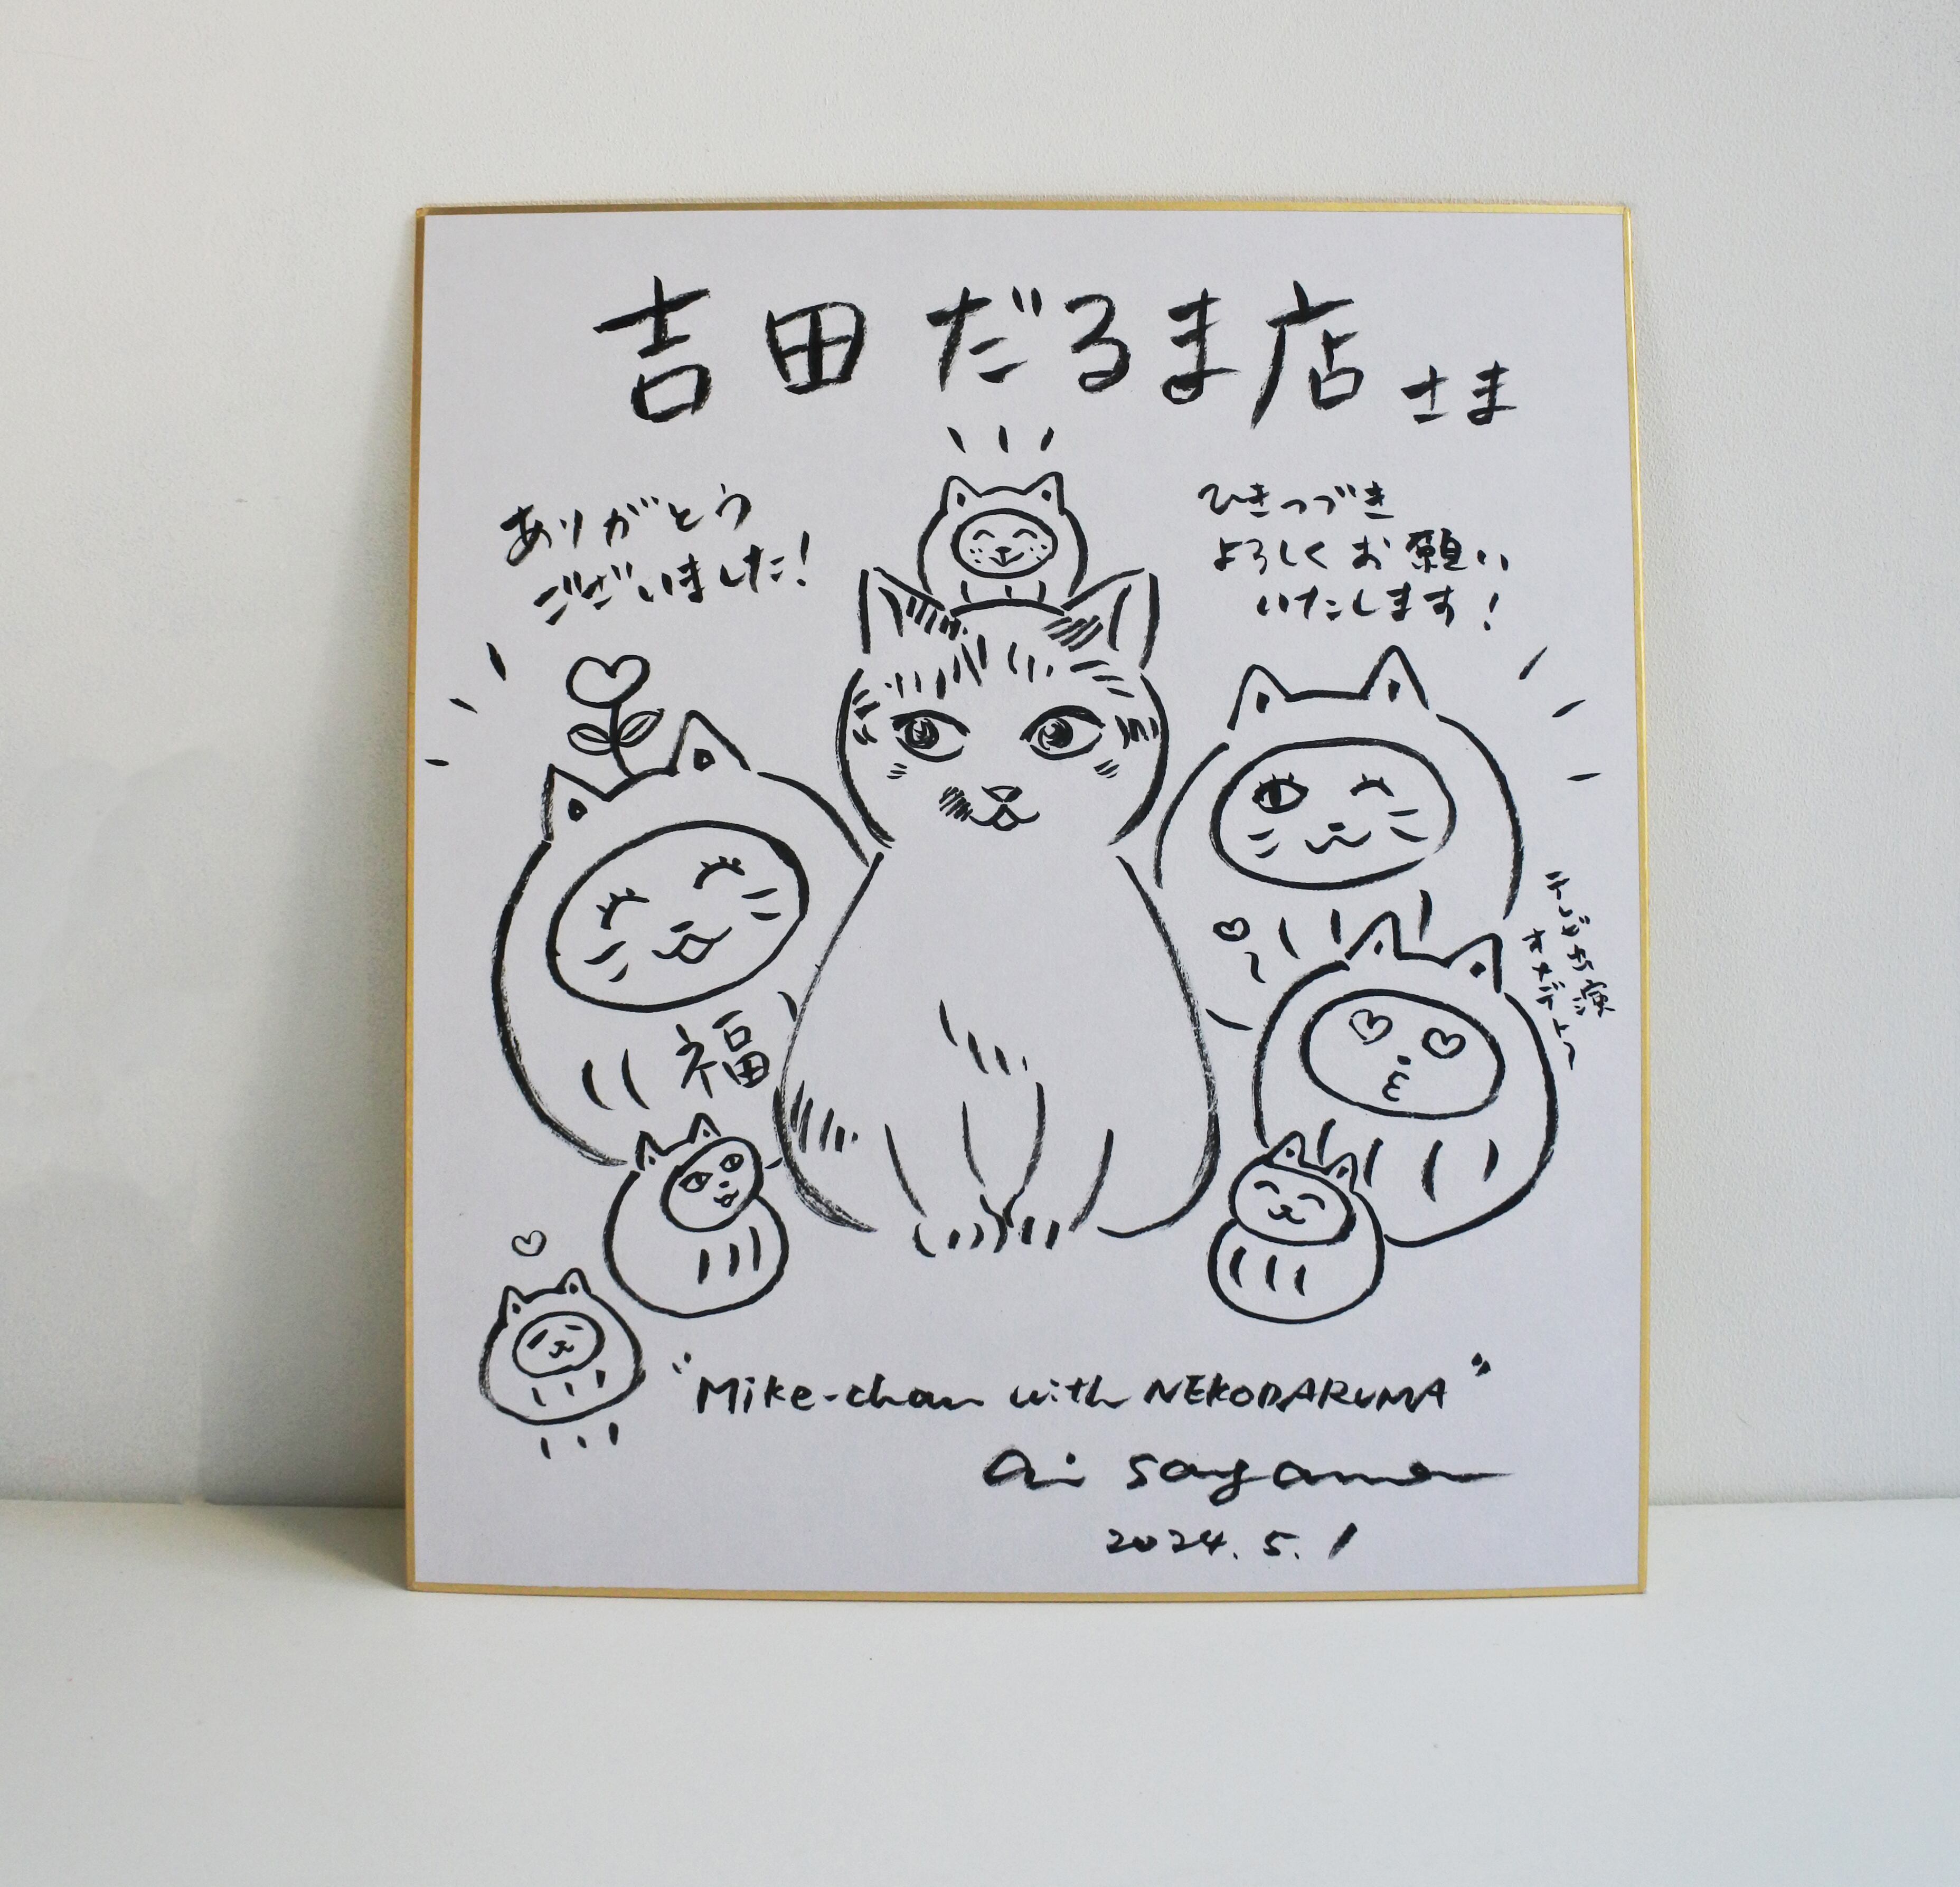 吉田だるま店さま
ありがとう
ございました!
ひきつづき
よろしくお願い
いたします!
テレビ出演
オメデト〜
福
"Mike-chan with NEKODARUMA"
ai sayama
2024.5.1